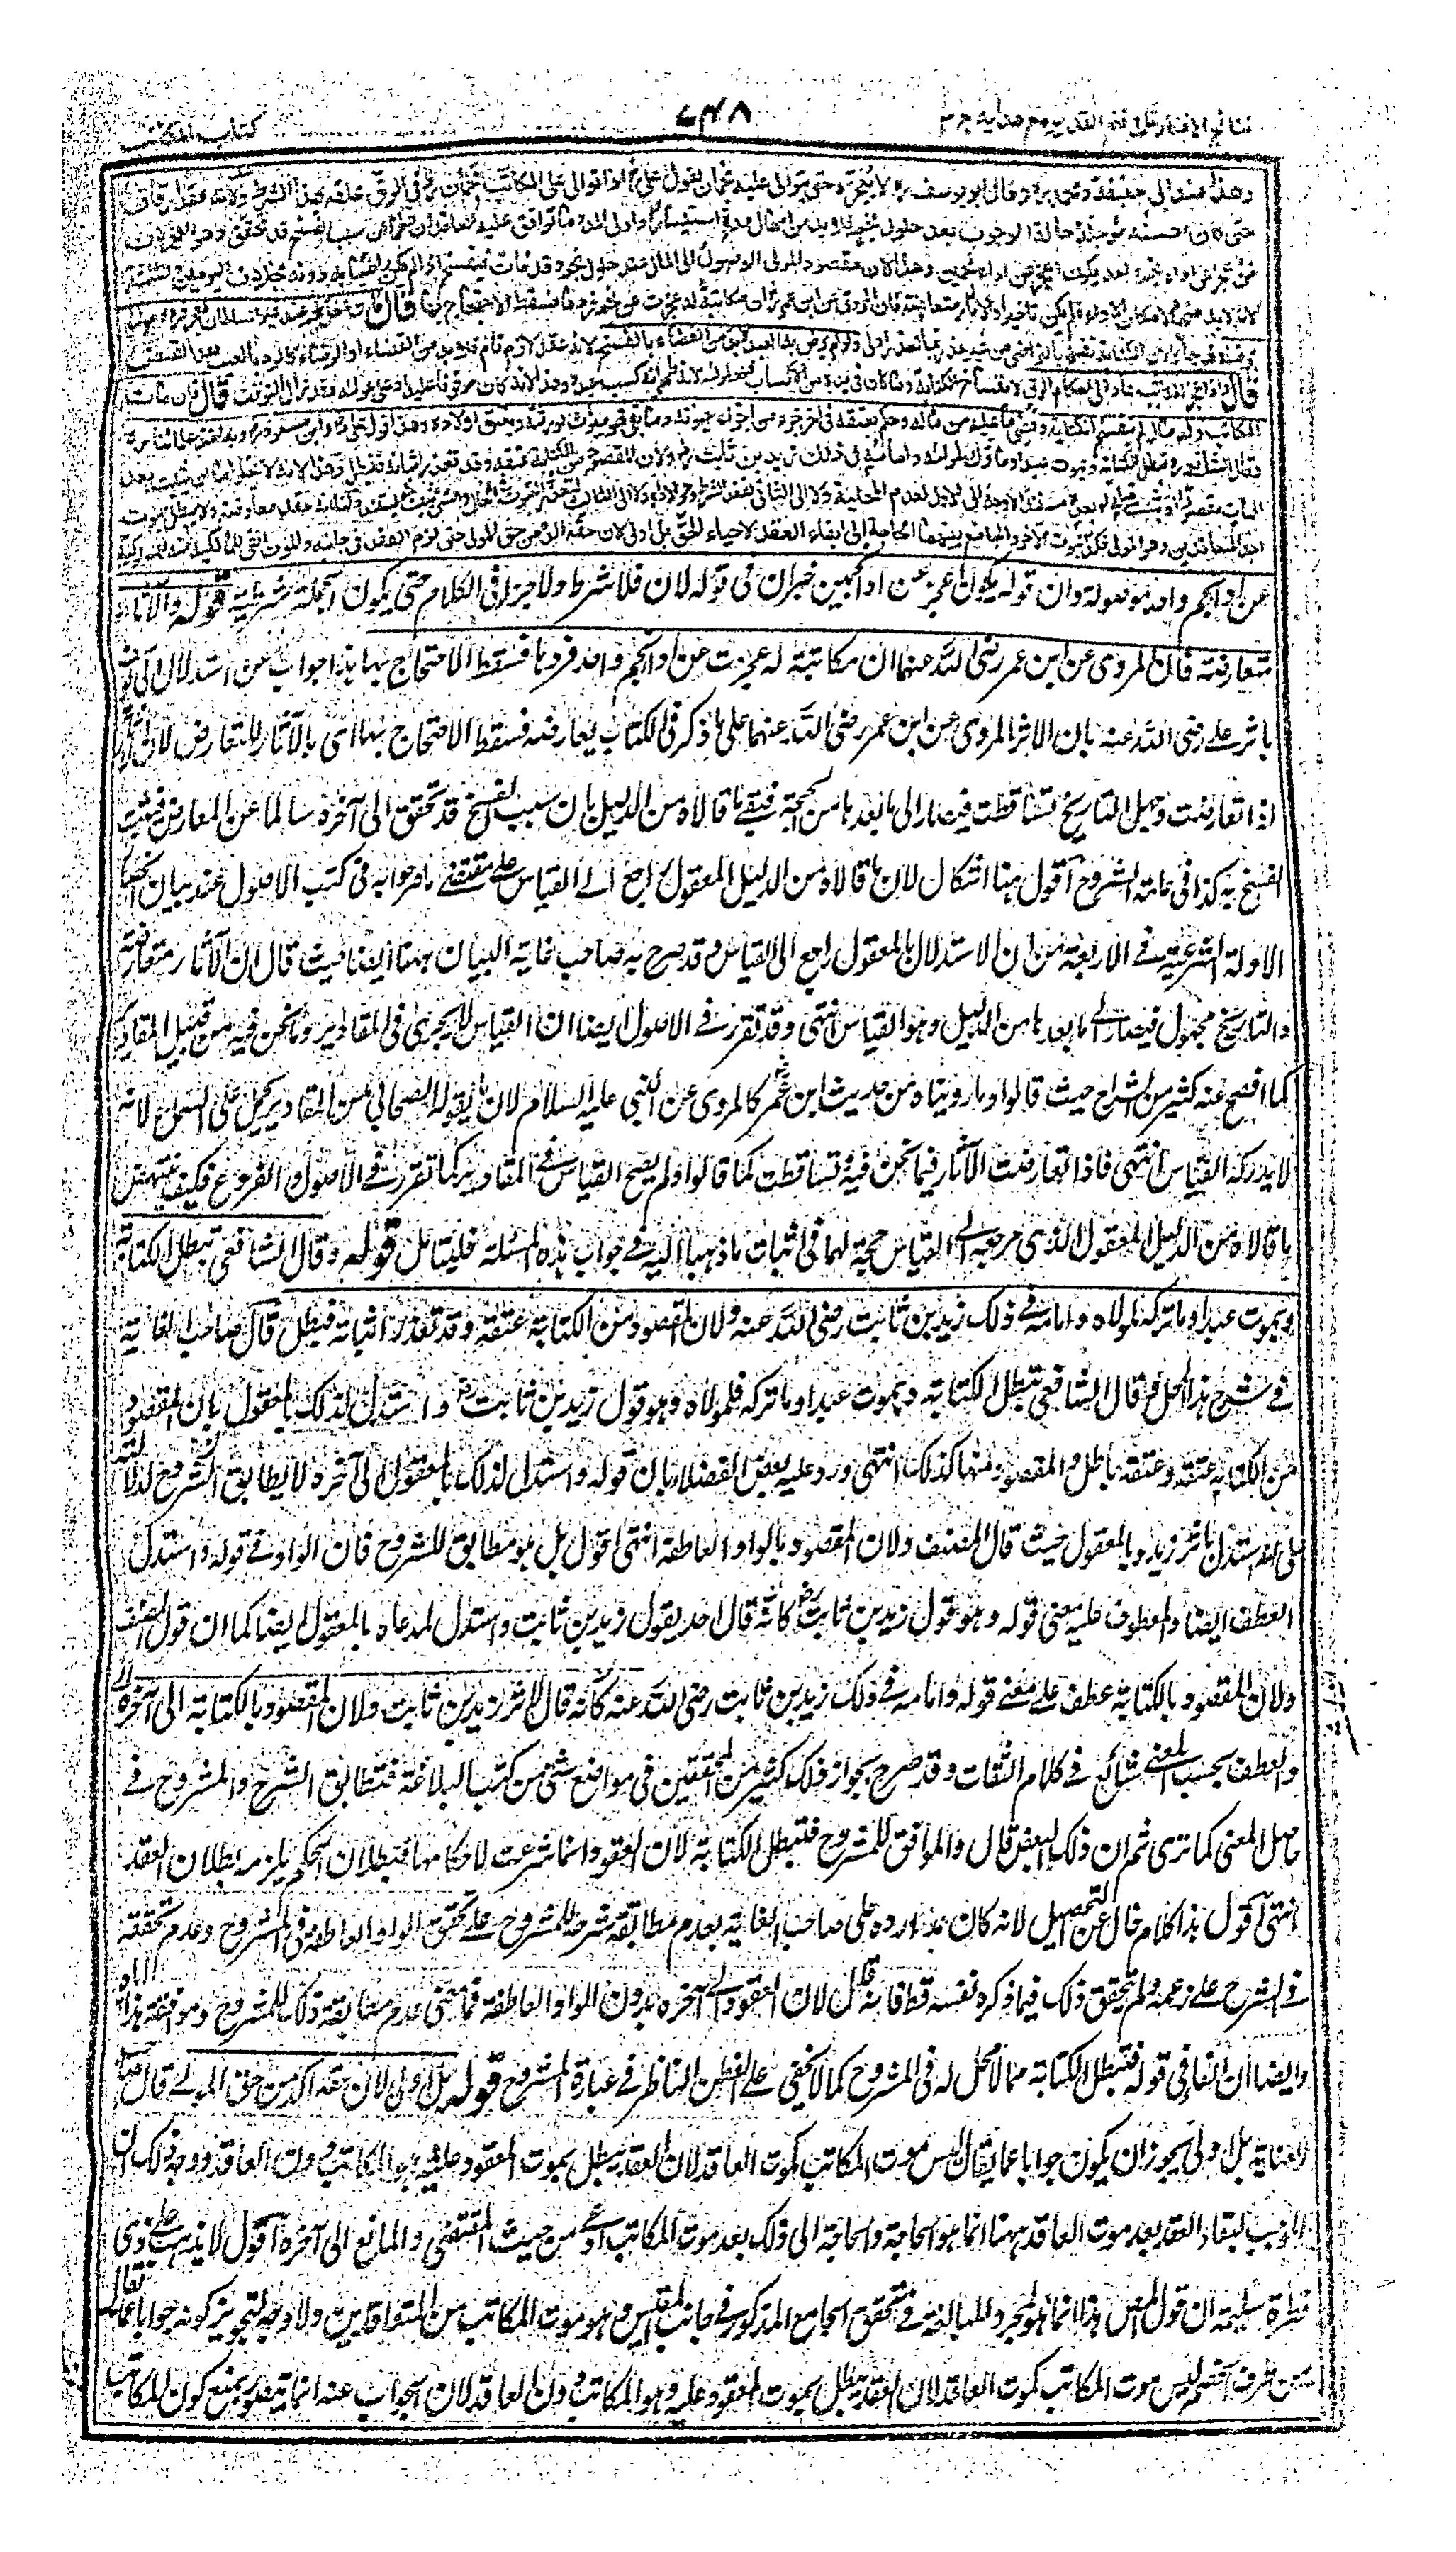 نتائج الافكار على فتح القدير مع هداية ج ٣
٧٣٨
كتاب المكاتب
وهذا عند ابى حنيفة ومحمد وقال ابو يوسف لا يعجزه حتى يتوالى عليه نجمان لقول على اذا توالى على المكاتب نجمان رد فى الرق علقه بهذا الشرط ولانه عقد ارفاق
حتى كان احسنه مؤجله وحالة الوجوب بعد حلول نجم فلا بد من امهال مدة استيسارا واولى المدد ما توافق عليه العاقدان ولهما ان سبب الفسخ قد تحقق وهو العجز لان
من عجز عن اداء نجم واحد يكون اعجز عن اداء نجمين وهذا لان مقصود المولى الوصول الى المال عند حلول نجم وقد فات فيفسخ اذا لم يكن راضيا به دونه بخلاف اليومين والثلثة
لانه لا بد منها لامكان الاداء فلم يكن تاخيرا والاثار متعارضة فان المروى عن ابن عمر ان مكاتبة له عجزت عن نجم فردها فسقط الاحتجاج بها قال
قال واذا عجز المكاتب عاد الى احكام الرق لانفساخ الكتابة وما كان فى يده من الاكساب فهو لمولاه لانه ظهر انه كسب عبده وهذا لانه كان موقوفا عليه او على مولاه وقد زال التوقف قال فان مات
المكاتب وله مال لم تنفسخ الكتابة وقضى ما عليه من ماله وحكم بعتقه فى اخر جزء من اجزاء حيوته وما بقى فهو ميراث لورثته ويعتق اولاده وهذا قول على وابن مسعود وبه اخذ علماؤنا
وقال الشافعى تبطل الكتابة ويموت عبدا وما تركه لمولاه وامامه فى ذلك زيد بن ثابت ولان المقصود من الكتابة عتقه وقد تعذر اثباته فتبطل وهذا لانه لا يخلو اما ان يثبت بعد
الممات مقصودا او يثبت قبله او بعده مستندا لا وجه الى الاول لعدم المحلية ولا الى الثانى لفقد الشرط وهو الاداء ولا الى الثالث لتعذر الثبوت فى الحال والشئ يثبت ثم يستند ولنا انه عقد معاوضة ولا يبطل بموت
احد المتعاقدين وهو المولى فكذا بموت الاخر والجامع بينهما الحاجة الى ابقاء العقد لاحياء الحق بل اولى لان حقه اكد من حق المولى حتى لزم العقد فى جانبه والموت انفى للمالكية منه للمملوكية
عن اداء نجم واحد موصولة وان قوله يكون اعجز عن اداء نجمين خبر ان فى قوله لان فلا شرط ولا جزاء فى الكلام حتى يكون الجملة شرطية قوله والاثار
متعارضة فان المروى عن ابن عمر رضى الله عنهما ان مكاتبة له عجزت عن اداء نجم واحد فردها فسقط الاحتجاج بها هذا جواب عن استدلال ابى يوسف
باثر على رضى الله عنه بان الاثر المروى عن ابن عمر رضى الله عنهما على ما ذكر فى الكتاب يعارضه فسقط الاحتجاج بها اى بالآثار للتعارض لان الآثار
اذا تعارضت وجهل التاريخ تساقطت فيصار الى ما بعدها من الحجة فيبقى ما قالاه من الدليل بان سبب الفسخ قد تحقق الى آخره سالما عن المعارض فيثبت
الفسخ به كذا فى عامة الشروح اقول هنا اشكال لان ما قالاه من الدليل المعقول راجع الى القياس على مقتضى ما صرحوا به فى كتب الاصول عند بيان انحصار
الادلة الشرعية فى الاربعة من ان الاستدلال بالمعقول راجع الى القياس وقد صرح به صاحب غاية البيان ههنا ايضا حيث قال ان الآثار متعارضة
والتاريخ مجهول فيصار الى ما بعدها من الدليل وهو القياس انتهى وقد تقرر فى الاصول ايضا ان القياس لا يجرى فى المقادير وما نحن فيه من قبيل المقادير
كما افصح عنه كثير من الشراح حيث قالوا وما رويناه من حديث ابن عمر كالمروى عن النبى عليه السلام لان ما يقوله الصحابى من المقادير يحمل على السماع لانه
لا يدركه القياس انتهى فاذا تعارضت الآثار فيما نحن فيه تساقطت كما قالوا ولم يصح القياس فى المقادير كما تقرر فى الاصول والفروع فكيف ينتهض
ما قالاه من الدليل المعقول الذى مرجعه الى القياس حجة لهما فى اثبات ما ذهبا اليه فى جواب هذه المسئلة فليتامل قوله وقال الشافعى تبطل الكتابة
ويموت عبدا وما تركه لمولاه وامامه فى ذلك زيد بن ثابت رضى الله عنه ولان المقصود من الكتابة عتقه وقد تعذر اثباته فتبطل قال صاحب الغاية
فى شرح هذا المحل وقال الشافعى تبطل الكتابة ويموت عبدا وما تركه فلمولاه وهو قول زيد بن ثابت رض واستدل لذلك بالمعقول بان المقصود
من الكتابة عتقه وعتقه باطل والمقصود منها كذلك انتهى ورد عليه بعض الفضلاء بان قوله واستدل لذلك بالمعقول الى آخره لا يطابق المشروح لدلالته
على انه استدل باثر زيد وبالمعقول حيث قال المصنف ولان المقصود بالواو العاطفة انتهى اقول بل هو مطابق للمشروح فان الواو فى قوله واستدل
للعطف ايضا والمعطوف عليه معنى قوله وهو قول زيد بن ثابت رض كانه قال اخذ بقول زيد بن ثابت واستدل لمدعاه بالمعقول ايضا كما ان قول المصنف
ولان المقصود بالكتابة عطف على معنى قوله وامامه فى ذلك زيد بن ثابت رضى الله عنه كانه قال لاثر زيد بن ثابت ولان المقصود بالكتابة الى آخره
والعطف بحسب المعنى شائع فى كلام الثقات وقد صرح بجواز ذلك كثير من المحققين فى مواضع شتى من كتب البلاغة فتطابق الشرح والمشروح فى
اصل المعنى كما ترى ثم ان ذلك البعض قال والموافق للمشروح فتبطل الكتابة لان العقود انما شرعت لاحكامها فبطلان الحكم يلزمه بطلان العقد
انتهى اقول هذا كلام خال عن التحصيل لانه كان مدار رده على صاحب الغاية بعدم مطابقة شرحه للمشروح على تحقق الواو العاطفة فى المشروح وعدم تحققه
فى الشرح على زعمه ولم يتحقق ذلك فيما ذكره نفسه قط فانه قال لان العقود الى آخره بدون الواو العاطفة فما معنى عدم مطابقة ذلك للمشروح وموافقة هذا اياه
وايضا ان الفاء فى قوله فتبطل الكتابة مما لا محل له فى المشروح كما لا يخفى على الفطن الناظر فى عبارة المشروح قوله بل اولى لان حقه اكد من حق المولى قال صاحب
العناية بل اولى يجوز ان يكون جوابا عما يقال ليس موت المكاتب كموت العاقد لان العقد يبطل بموت المعقود عليه وهو المكاتب دون العاقد ووجه ذلك ان
الموجب لبقاء العقد بعد موت العاقد ههنا انما هو الحاجة والحاجة الى ذلك بعد موت المكاتب ادعى من حيث المقتضى والمانع الى آخره اقول لا يذهب على ذى
فطرة سليمة ان قول المص هذا انما هو لمجرد المبالغة فى تحقق الجامع المذكور فى جانب المقيس وهو موت المكاتب من المتعاقدين ولا وجه لتجويز كونه جوابا عما يقال
من طرف الخصم ليس موت المكاتب كموت العاقد لان العقد يبطل بموت المعقود عليه وهو المكاتب دون العاقد لان الجواب عنه انما يتصور بمنع كون المكاتب